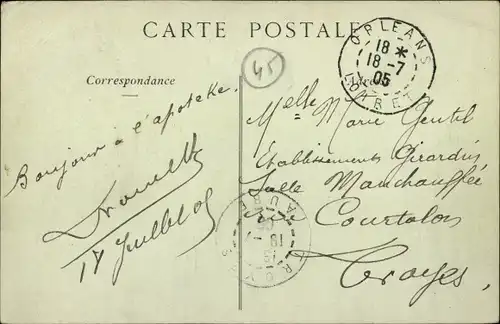 CARTE POSTALE
Correspondance
ORLEANS
18 *
18 -7
05
LOIRET
45
Bonjour à l'apoteke.
17 Juillet 05
Melle Marie Gentil
Etablissements Girardin
Salle Manchauffée
Rue Courtalon
Troyes
TROYES
AUBE